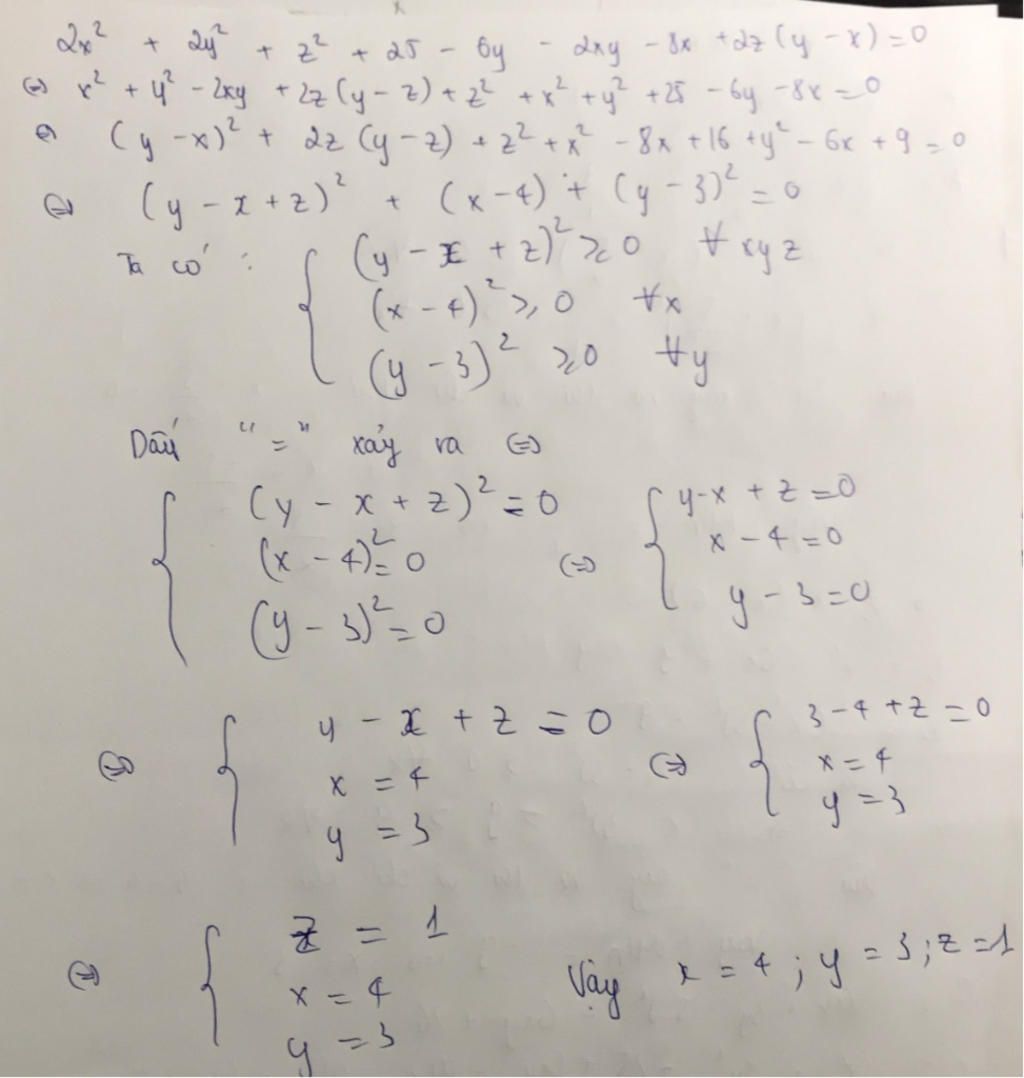 2x² + 2y² + z² + 25 - 6y - 2xy - 8x + 2z(y - x) = 0
⇔ x² + y² - 2xy + 2z(y - z) + z² + x² + y² + 25 - 6y - 8x = 0
⇔ (y - x)² + 2z(y - z) + z² + x² - 8x + 16 + y² - 6x + 9 = 0
⇔ (y - x + z)² + (x - 4) + (y - 3)² = 0
Ta có : { (y - x + z)² ≥ 0 ∀ xyz
(x - 4)² ≥ 0 ∀x
(y - 3)² ≥ 0 ∀y
Dấu "=" xảy ra ⇔
{ (y - x + z)² = 0 ⇔ { y - x + z = 0
(x - 4)² = 0 x - 4 = 0
(y - 3)² = 0 y - 3 = 0
⇔ { y - x + z = 0 ⇔ { 3 - 4 + z = 0
x = 4 x = 4
y = 3 y = 3
⇔ { z = 1
x = 4 Vậy x = 4 ; y = 3 ; z = 1
y = 3